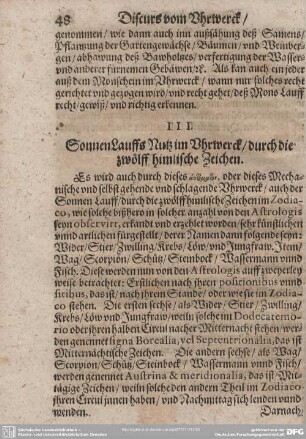 48 Discurs vom Vhrwerck/
genommen/ wie dann auch inn außsähung deß Samens/
Pflanzung der Gartengewächse/ Bäumen/ vnd Weinber-
gen/ abhawung deß Bawholzes/ verfertigung der Wasser
vnd anderer fürnemen Gebäwen/ ꝛc. Als kan auch ein jeder
auß dem Monschein im Vhrwerck/ wann nur solches recht
gerichtet vnd gezogen wird/ vnd recht gehet/ deß Mons Lauff
recht/ gewiß/ vnd richtig erkennen.
III.
Sonnen Lauffs Nutz im Vhrwerck/ durch die
zwölff himlische Zeichen.
Es wird auch durch dieses oder dieses Mecha-
nische vnd selbst gehende vnd schlagende Vhrwerck/ auch der
Sonnen Lauff/ durch die zwölff himlische Zeichen im Zodia-
co, wie solche bißhero in solcher anzahl von den Astrologis
seyn observirt, erkandt vnd erzehlet worden/ sehr künstlichen
vnd artlichen fürgestellt/ derer Namen dann folgende seyn:
Wider/ Stier/ Zwilling/ Krebs/ Löw/ vnd Jungfraw. Item/
Wag/ Scorpion/ Schütz/ Steinbock/ Wassermann vnnd
Fisch. Diese werden nun von den Astrologis auff zweyerley
weise betrachtet: Erstlichen nach ihren positionibus vnnd
sitibus, das ist/ nach ihrem Stande/ oder wo sie im Zodia-
co stehen. Die ersten sechse/ als Wider/ Stier/ Zwilling/
Krebs/ Löw vnd Jungfraw/ weiln solche im Dodecatemo-
rio oder ihren halben Circul nacher Mitternacht stehen/ wer-
den genennet signa Borealia, vel Septentrionalia, das ist
Mitternächtische Zeichen. Die andern sechse/ als Wag/
Scorpion/ Schütz/ Steinbock/ Wassermann vnnd Fisch/
werden genennet Austrina & Meridionalia, das ist Mit-
tägige Zeichen/ weiln solche den andern Theil im Zodiaco
ihren Circul innen haben/ vnd Nachmittag sich lenden vund
wenden. Darnach/